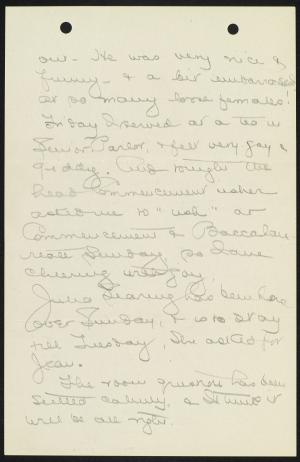 out. He was very nice &
funny - & a bit embarrassed
at so many loose females!
Friday I served at a tea in
Senior Parlor, & felt very gay &
giddy. And tonight the
head Commencement usher
asked me to "ush" at
Commencement & Baccalau
reate Sunday, so I am
cheering
Julia has been here
over Sunday, & is to stay
till Tuesday. She asked for
Jean.
The room question has been
settled calmly, & I think it
will be all right.